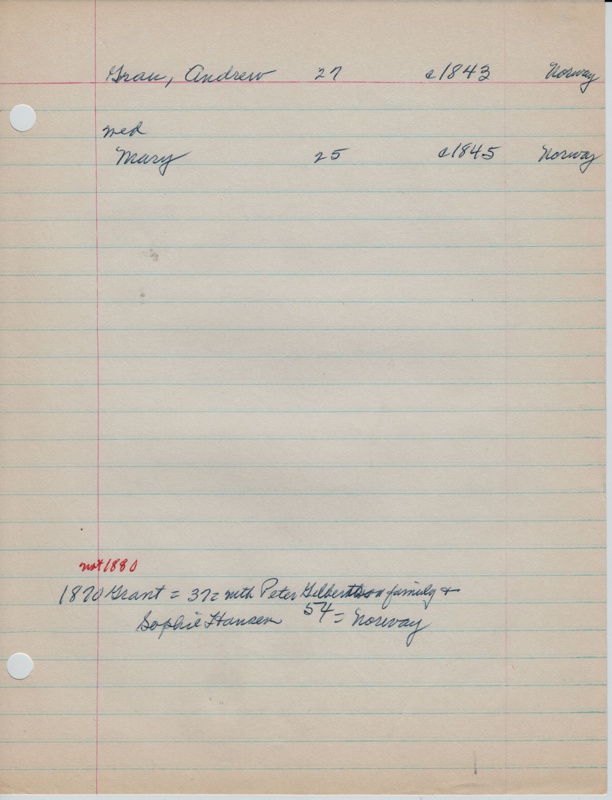 Grau, Andrew 27 c1843 Norway
med
Mary 25 c1845 Norway
not 1880
1870 Grant = 372 with Peter Gilbertson family +
Sophie Hansen 54 = Norway